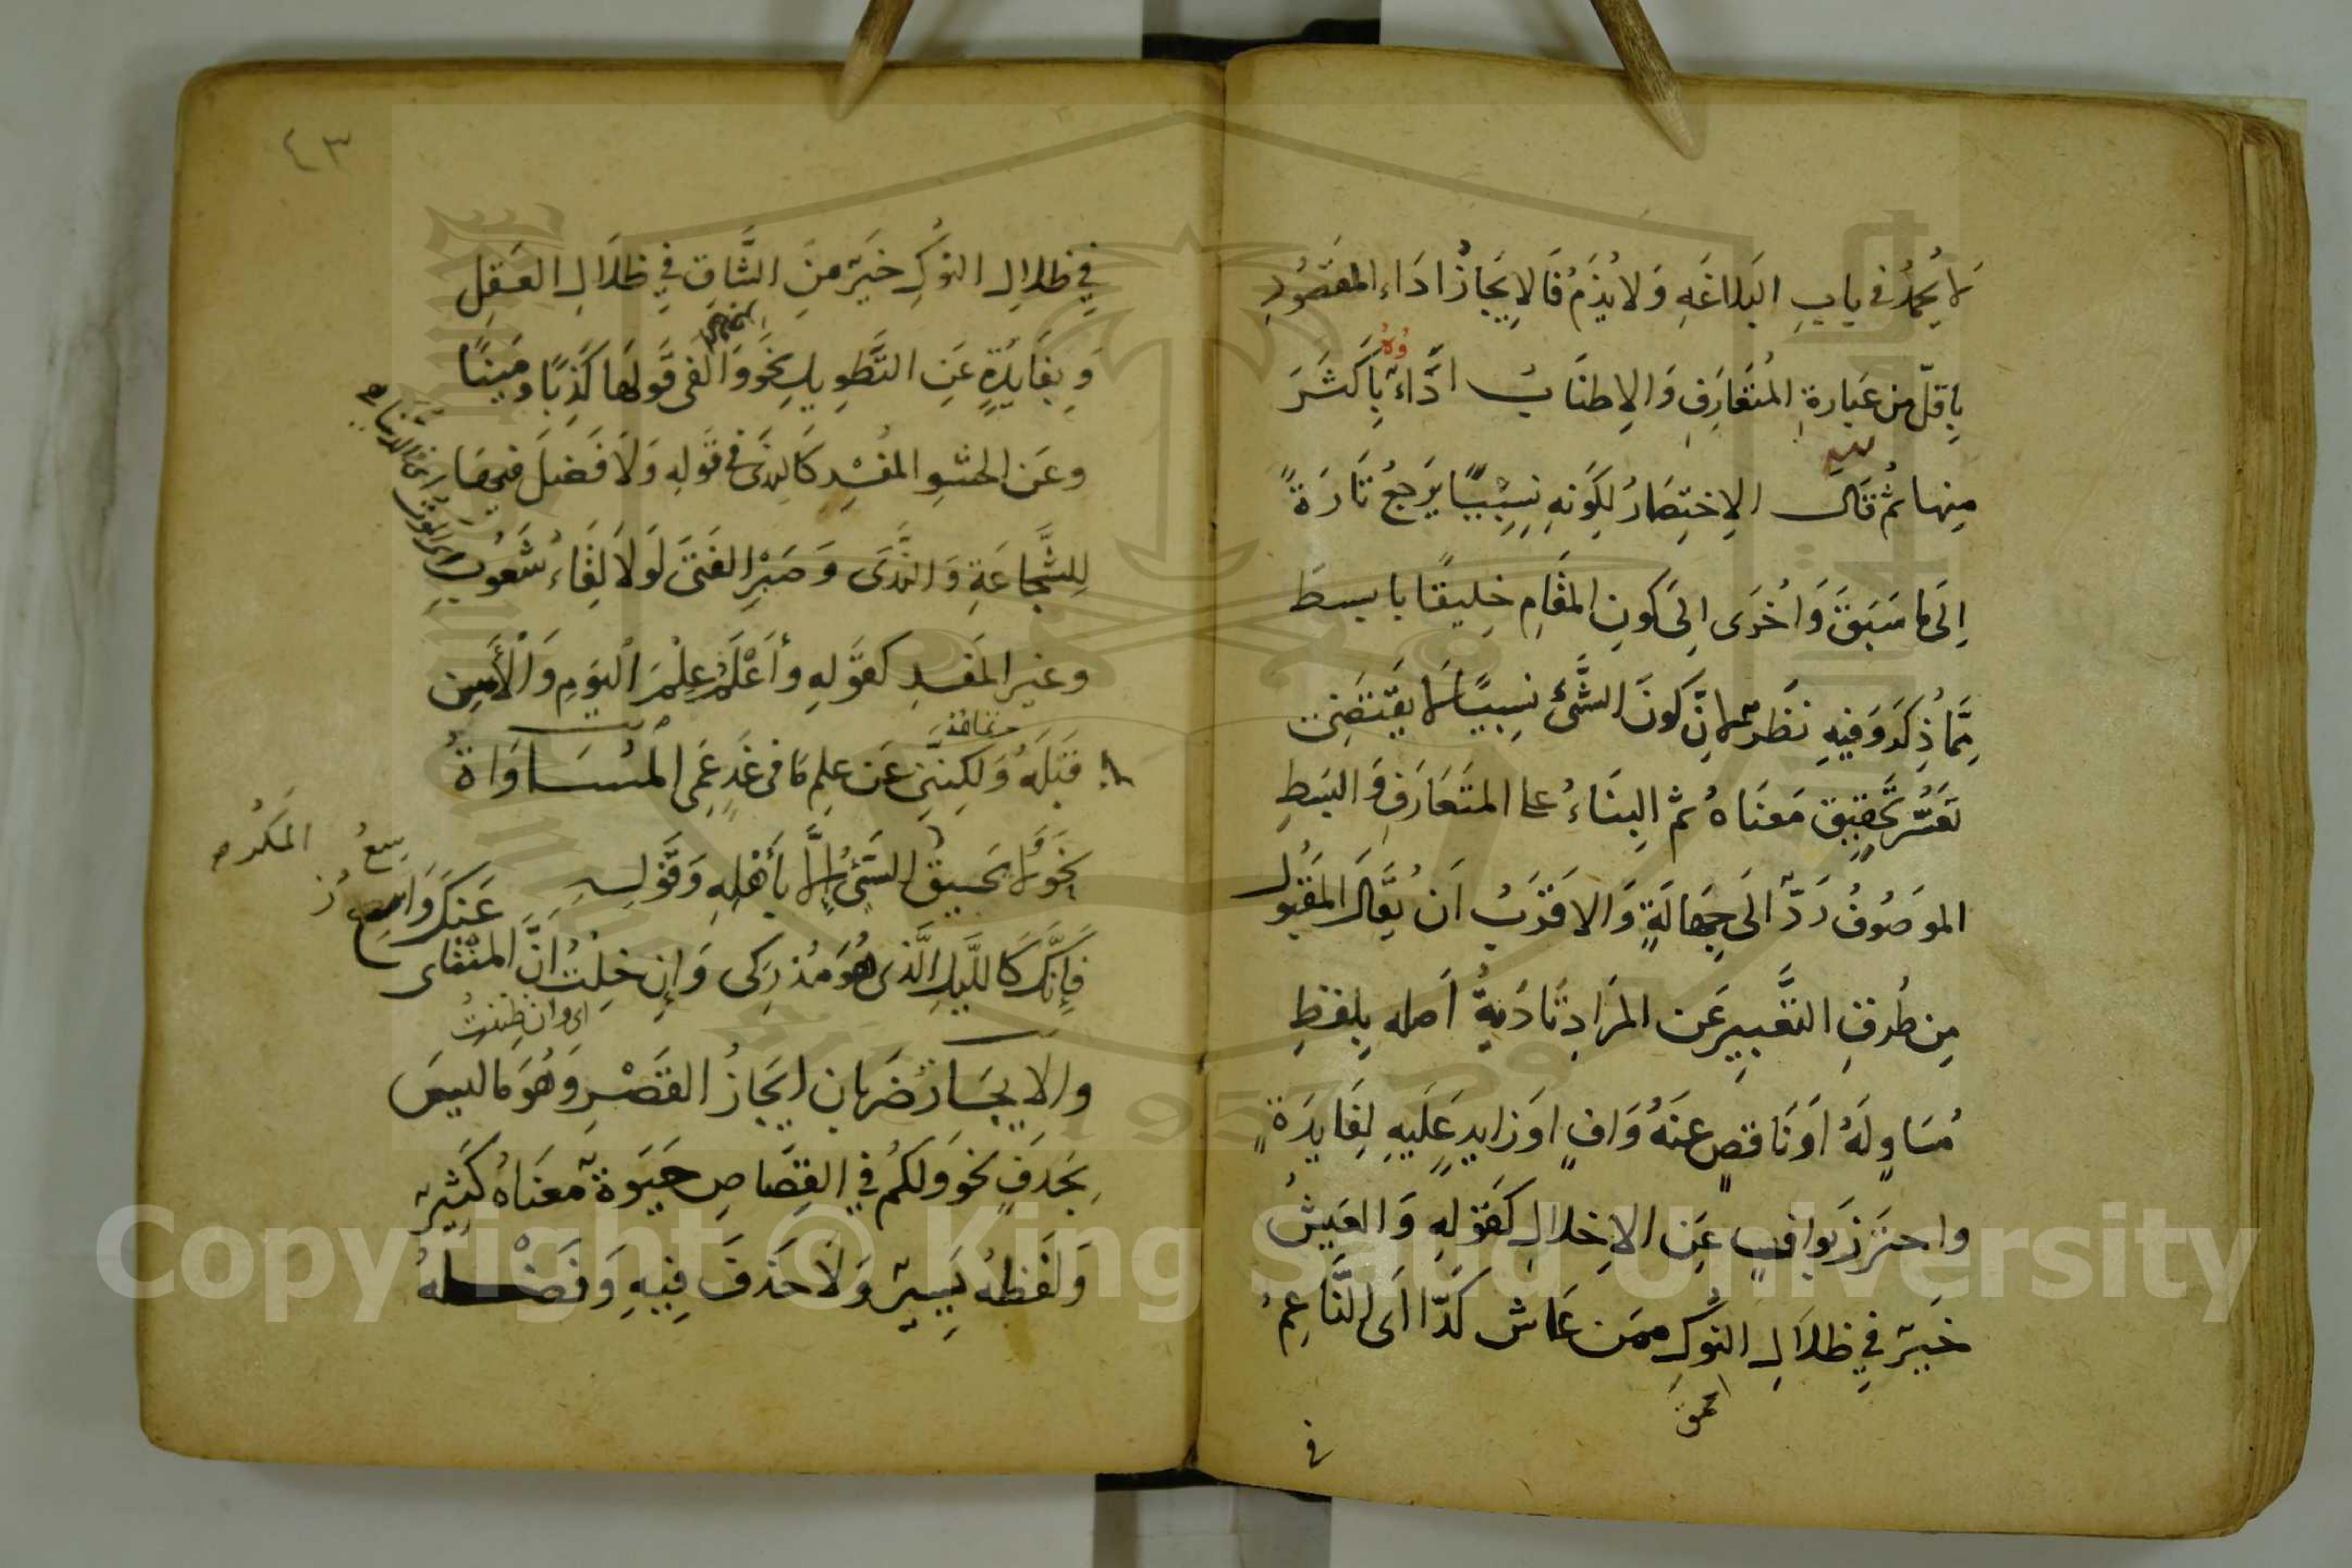 لا يُحمَدُ في بابِ البَلاغَةِ وَلا يُذَمُ فَالإيجَازُ ادَاء المقصُودِ
بِاقلّ من عَبارةِ المُتَعَارَفِ وَالإطنَابُ ادَّاءُ بِاَكثَرَ
وهُ
مِنها ثُم قَالَ الاِختِصَارُ لِكَونِهِ نِسِبِيًّا يَرجعُ تَارَةً
اِلَى مَا سَبَقَ وَاُخرَى اِلَى كَونِ المقَامِ خلِيقًا بابسطَ
مِمَّا ذُكِرَ وَفِيهِ نَظَرٌ لانّ كَونَ الشَّئِ نِسبِيًّا لا يَقتَضِى
تَعَسُّر تَحقِيقِ مَعنَاهُ ثم البِنَاءُ على المتَعَارَفِ وَالبَسَطِ
الموصُوفُ رَدٌّ الَى جِهَالَةٍ وَالاَقرَبُ اَن يُقَالَ المقبُولُ
مِن طُرقِ التَّعبِيرِ عَن المرَادِ تَادِيةُ اَصله بِلفظِ
مُسَاوٍ لَهُ اَو نَاقصٍ عنهُ وَافٍ اَو زَايدٍ عَلَيهِ لِفَايدَةٍ
واحتَرَز بَوافٍ عَنِ الاِخلالِ كَقَولِهِ وَالعَيشُ
خَيرٌ فِي ظلاَلِ النُّوكِ ممَن عَاشَ كَدّا اَى النَّاعِمُ
الحمق
في
٤٣
فِي ظلالِ النُوكِ خَيرٌ مِنَ الشَّاقِ فِي ظلاَلِ العَقلِ
وَبِفَايدَةٍ عَنِ التَّطوِيلِ نَحوَ وَالفى قَولَهَا كَذِبًا ومَينًا
وعَنِ الحشوِ المفُسِدِ كَالنَدَى فى قَولِهِ وَلاَ فَضلَ فيهَا
لِلشَّجَاعَةِ وَالنَّدَى وَصَبْرِ الفَتَى لَولاَ لِقَاءُ شَعُوبِ
وغير المفسدِ كقَولِهِ وأَعْلَمُ عِلْمَ اليَومِ وَالْأَمسِ
قَبلَهُ وَلكِنّنِى عَن علِم مَا فى غَدٍ عَمِى المُسَاوَاةُ
نَحوَ ولا يَحيقُ المكرُ السَّيّئُ إلاَّ بأَهلِهِ وَقَولِهِ
فإِنَّكَ كَاللَّيلِ الَّذى هُوَ مُدرِكِى وَإِن خِلتُ اَنَّ المنتَاى عَنكَ وَاسِعُ
اى وان ظننتُ
والايجَازُ ضَربَان ايجَازُ القَصْرِ وَهُوَ مَا لَيسَ
بِحَذفٍ نَحوَ وَلَكُم فِي القِصَاصِ حَيَوةٌ مَعنَاهُ كَثِيرٌ
وَلَفظهُ يَسِيرٌ وَلاَ حَذفَ فِيهِ وَفَضْلُهُ